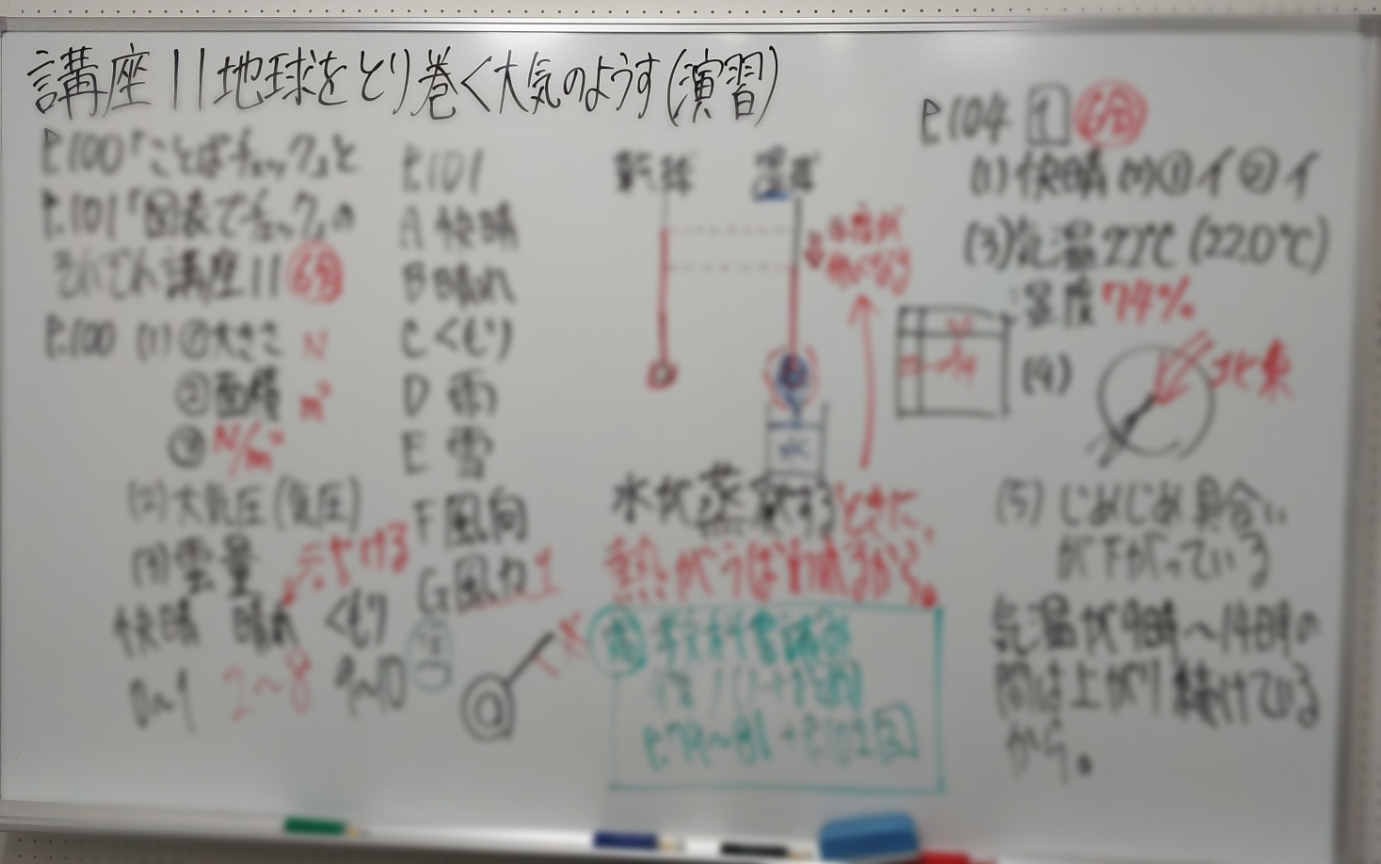 講座11地球をとり巻く大気のようす(演習)
P.100「ことばチェック」と
P.101「図表でチェック」の
講座11 6分
P.100 (1)①大きさ N
②面積 m²
③N/m²
(2)大気圧(気圧)
(3)雲量
快晴 晴れ くもり
0~1 2~8 9~10
P.101
A 快晴
B 晴れ
C くもり
D 雨
E 雪
F 風向
G 風力
乾球 湿球
水
水が蒸発するときに、
熱がうばわれるから。
P.104 1 6分
(1)快晴 (2)①イ②イ
(3)気温22℃(22.0℃)
湿度74%
(4) 北東
(5) じめじめ具合い
が下がっている
気温が9時~14時の
間は上がり続けている
から。